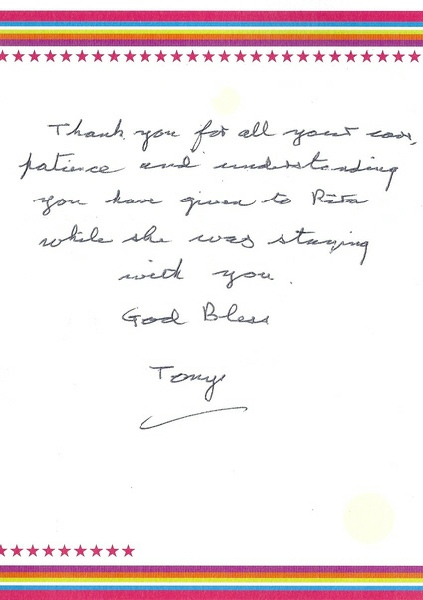 Thank you for all your care,
patience and understanding
you have given to Rita
while she was staying
with you.
God Bless
Tony